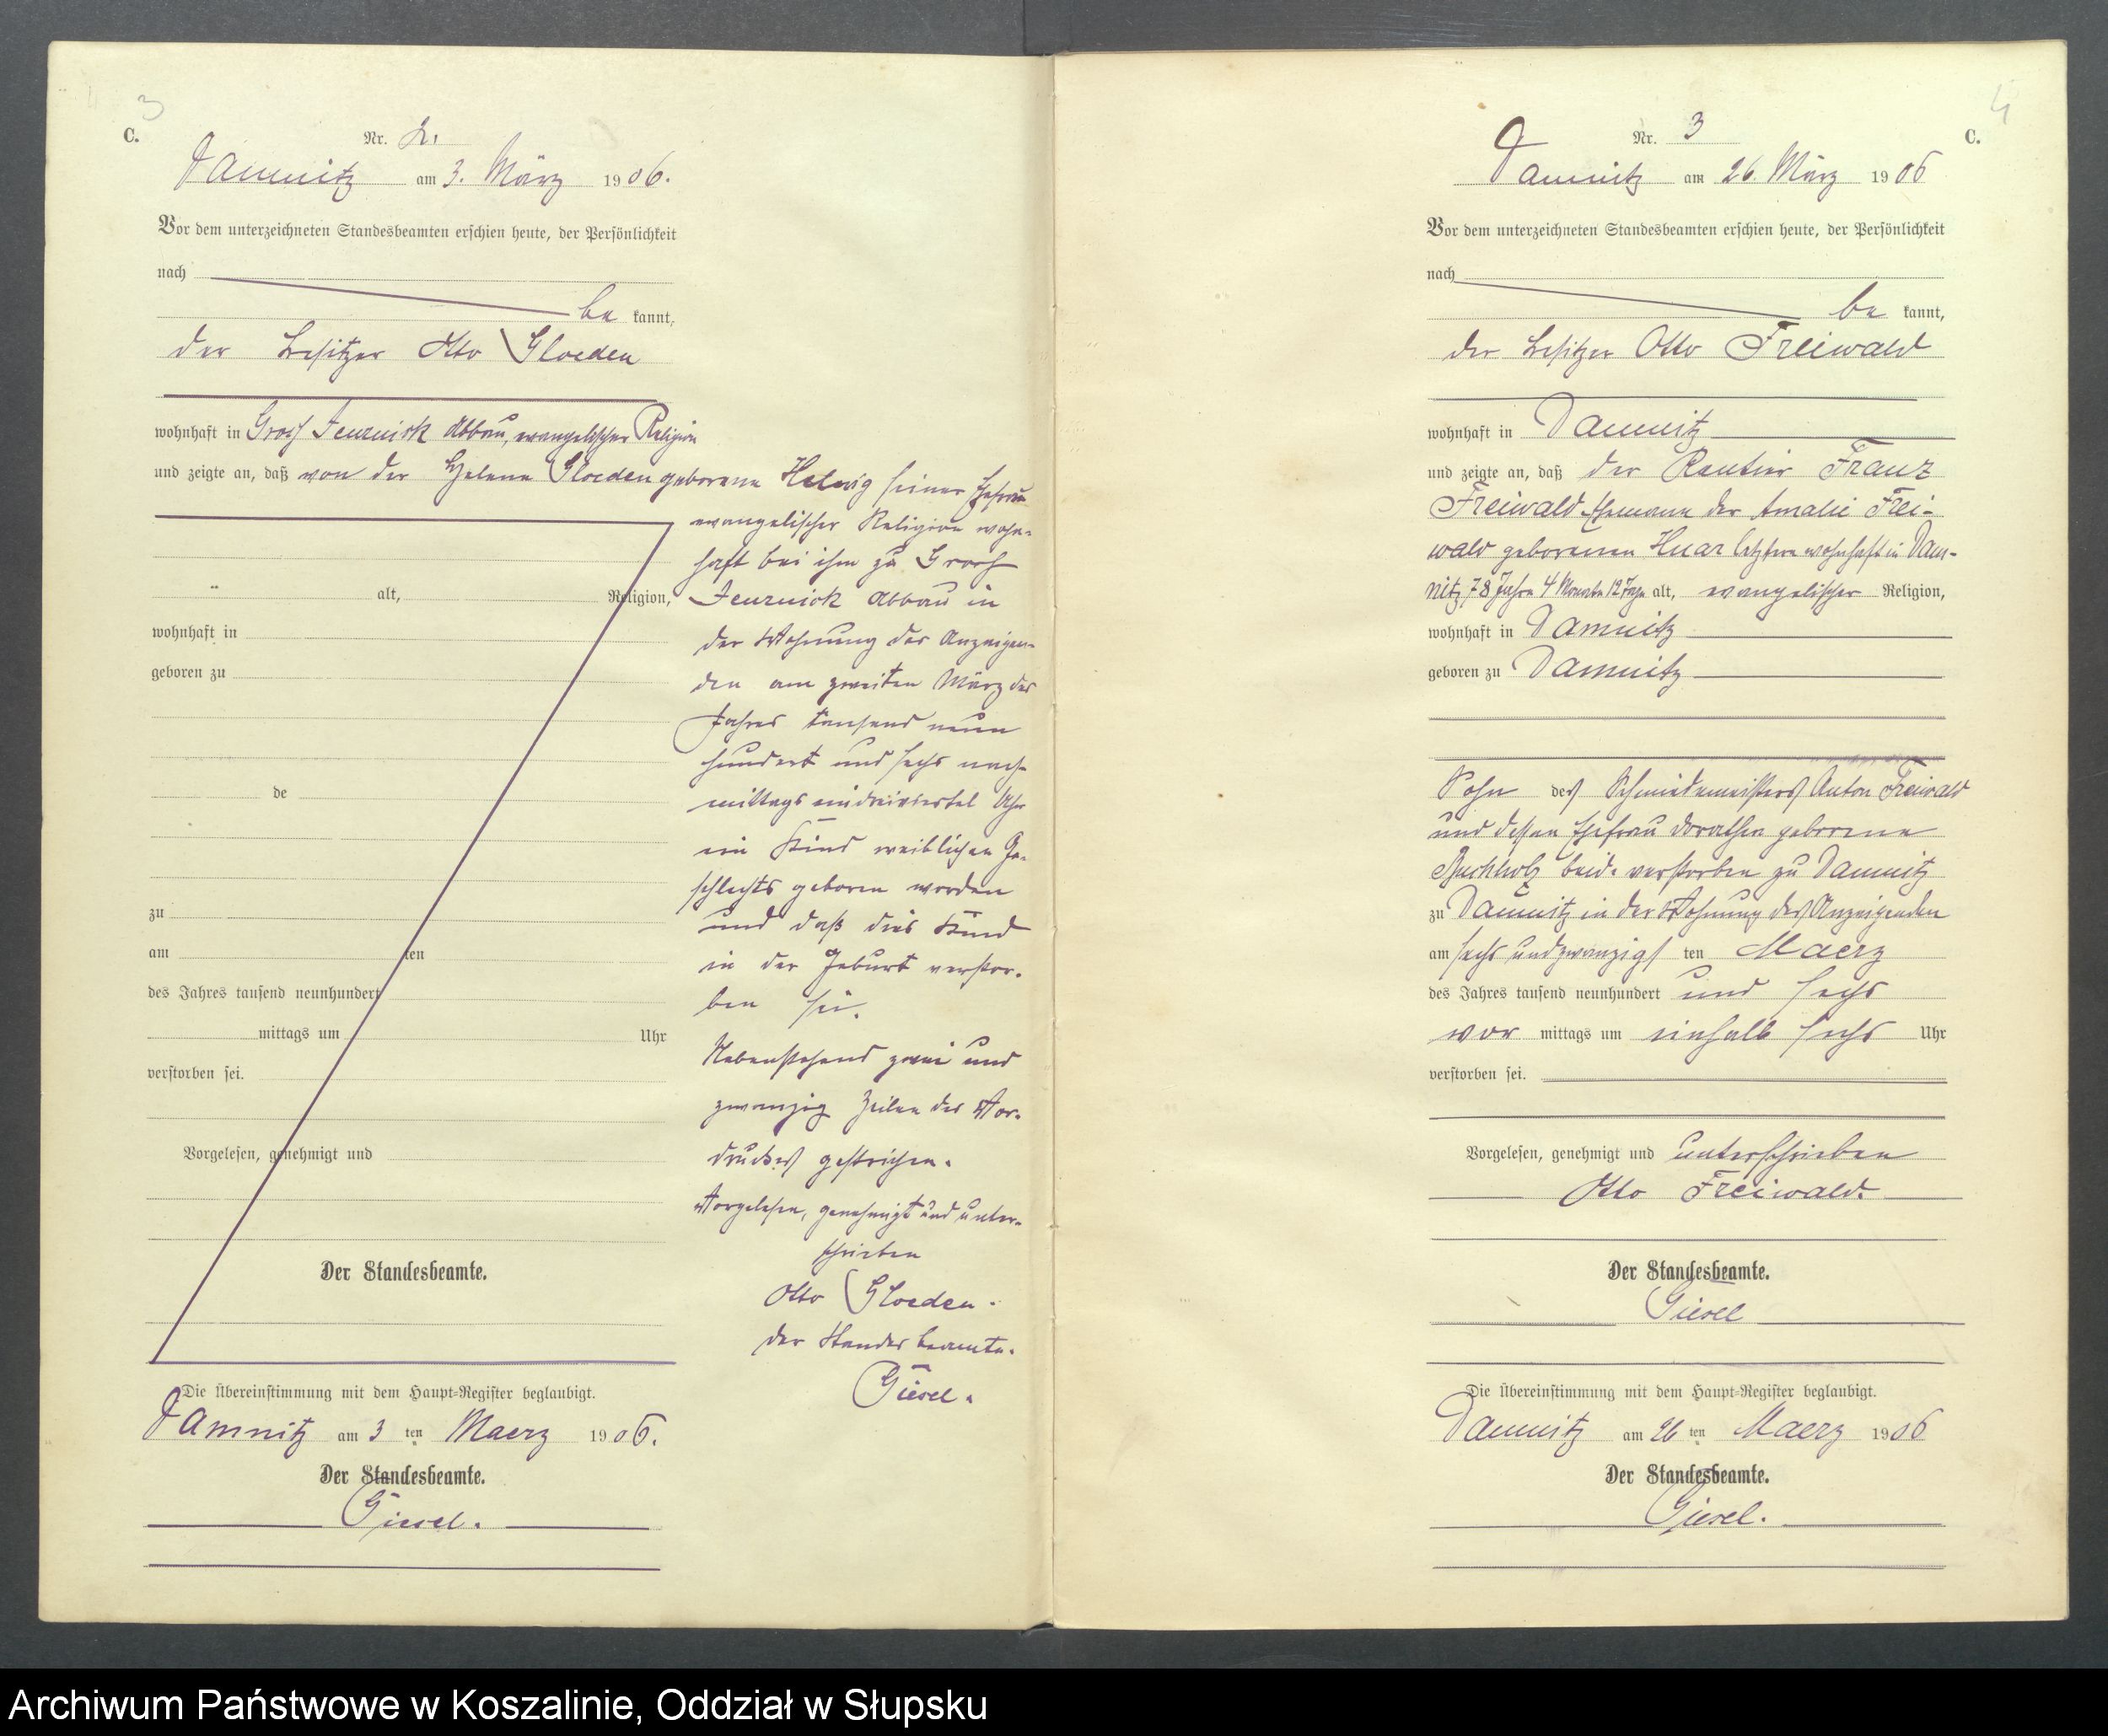 3
C.
Nr. 2.
Damnitz am 3. März 1906.
Vor dem unterzeichneten Standesbeamten erschien heute, der Persönlichkeit
nach
be kannt,
der Besitzer Otto Gloeden
wohnhaft in Gross Jenznick Abbau, evangelischer Religion
und zeigte an, daß von der Helene Gloeden geborene Helwig seiner Ehefrau
evangelischer Religion wohn-
haft bei ihm zu Gross
Jenznick Abbau in
der Wohnung des Anzeigen-
den am zweiten März des
Jahres tausend neun
hundert und sechs nach-
mittags eindreiviertel Uhr
ein Kind weiblichen Ge-
schlechts geboren worden
und daß dies Kind
in der Geburt verstor-
ben sei.
Nebenstehend zwei und
zwanzig Zeilen des Vor-
druckes gestrichen.
Vorgelesen, genehmigt und unter-
schrieben
Otto Gloeden.
der Standesbeamte.
Giesel.
alt, Religion,
wohnhaft in
geboren zu
de
zu
am ten
des Jahres tausend neunhundert
mittags um Uhr
verstorben sei.
Vorgelesen, genehmigt und
Der Standesbeamte.
Die Übereinstimmung mit dem Haupt-Register beglaubigt.
Damnitz am 3 ten Maerz 1906.
Der Standesbeamte.
Giesel.
4
C.
Nr. 3
Damnitz am 26. März 1906
Vor dem unterzeichneten Standesbeamten erschien heute, der Persönlichkeit
nach
be kannt,
der Besitzer Otto Freiwald
wohnhaft in Damnitz
und zeigte an, daß der Rentier Franz
Freiwald Ehemann der Amalie Frei-
wald geborenen Huar letztere wohnhaft in Dam-
nitz, 78 Jahre 4 Monate 12 Tage alt, evangelischer Religion,
wohnhaft in Damnitz
geboren zu Damnitz
Sohn des Schmiedemeisters Anton Freiwald
und dessen Ehefrau Dorothea geborene
Buchholz beide verstorben zu Damnitz
zu Damnitz in der Wohnung des Anzeigenden
am sechs undzwanzigs ten Maerz
des Jahres tausend neunhundert und sechs
vor mittags um einhalb sechs Uhr
verstorben sei.
Vorgelesen, genehmigt und unterschrieben
Otto Freiwald.
Der Standesbeamte.
Giesel
Die Übereinstimmung mit dem Haupt-Register beglaubigt.
Damnitz am 26 ten Maerz 1906
Der Standesbeamte.
Giesel.
Archiwum Państwowe w Koszalinie, Oddział w Słupsku